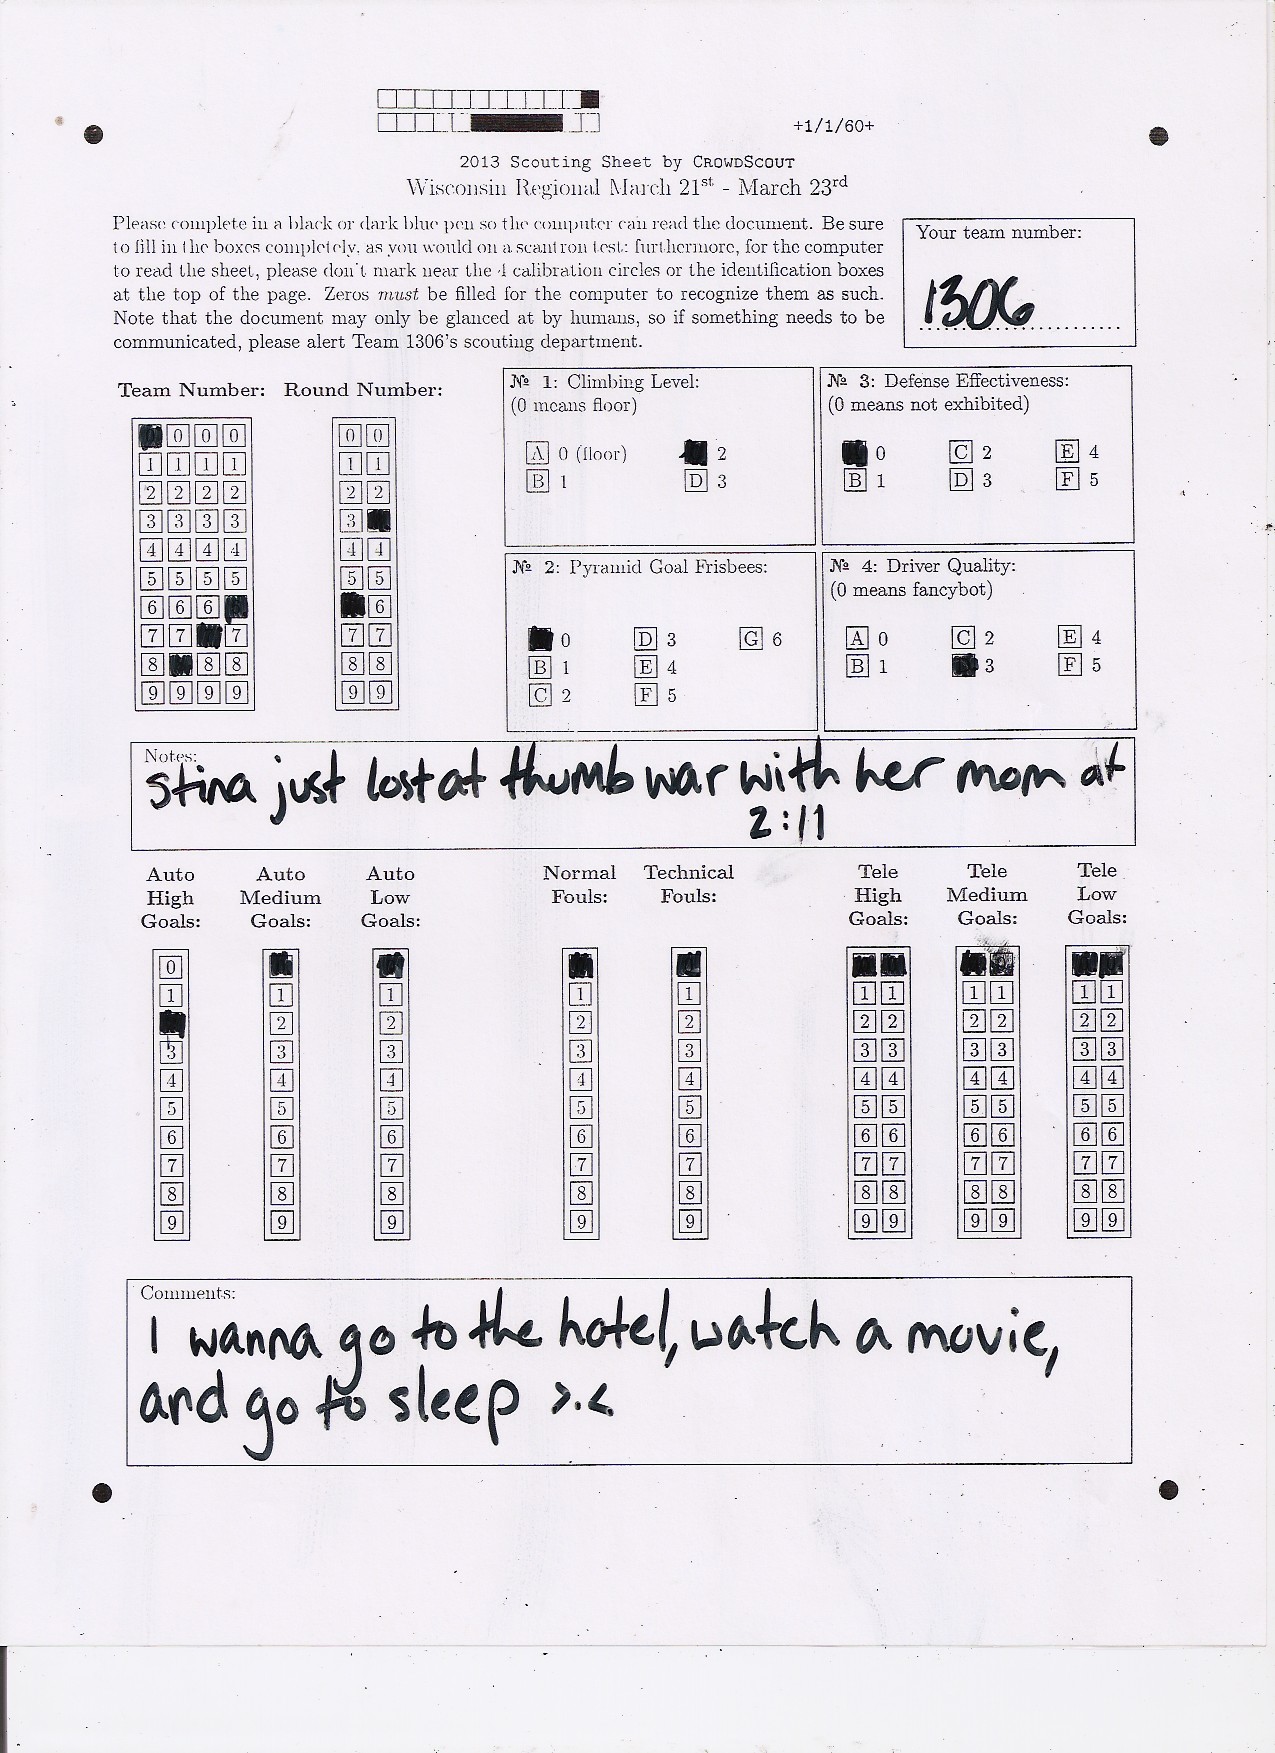 +1/1/60+
2013 Scouting Sheet by CROWDSCOUT
Wisconsin Regional March 21st - March 23rd
Please complete in a black or dark blue pen so the computer can read the document. Be sure
to fill in the boxes completely, as you would on a scantron test; furthermore, for the computer
to read the sheet, please don't mark near the 4 calibration circles or the identification boxes
at the top of the page. Zeros must be filled for the computer to recognize them as such.
Note that the document may only be glanced at by humans, so if something needs to be
communicated, please alert Team 1306's scouting department.
Your team number:
1306
Team Number: Round Number:
0 0 0 0 0
1 1 1 1 1 1
2 2 2 2 2 2
3 3 3 3 3
4 4 4 4 4 4
5 5 5 5 5 5
6 6 6 6
7 7 7 7 7
8 8 8 8 8
9 9 9 9 9 9
№ 1: Climbing Level:
(0 means floor)
A 0 (floor) 2
B 1 D 3
№ 3: Defense Effectiveness:
(0 means not exhibited)
0 C 2 E 4
B 1 D 3 F 5
№ 2: Pyramid Goal Frisbees:
0 D 3 G 6
B 1 E 4
C 2 F 5
№ 4: Driver Quality:
(0 means fancybot)
A 0 C 2 E 4
B 1 3 F 5
Notes:
Stina just lost at thumb war with her mom at
2:11
Auto High Goals: Auto Medium Goals: Auto Low Goals: Normal Fouls: Technical Fouls: Tele High Goals: Tele Medium Goals: Tele Low Goals:
0
1 1 1 1 1 1 1 1 1 1 1
2 2 2 2 2 2 2 2 2 2
3 3 3 3 3 3 3 3 3 3 3
4 4 4 4 4 4 4 4 4 4 4
5 5 5 5 5 5 5 5 5 5 5
6 6 6 6 6 6 6 6 6 6 6
7 7 7 7 7 7 7 7 7 7 7
8 8 8 8 8 8 8 8 8 8 8
9 9 9 9 9 9 9 9 9 9 9
Comments:
I wanna go to the hotel, watch a movie,
and go to sleep >.<